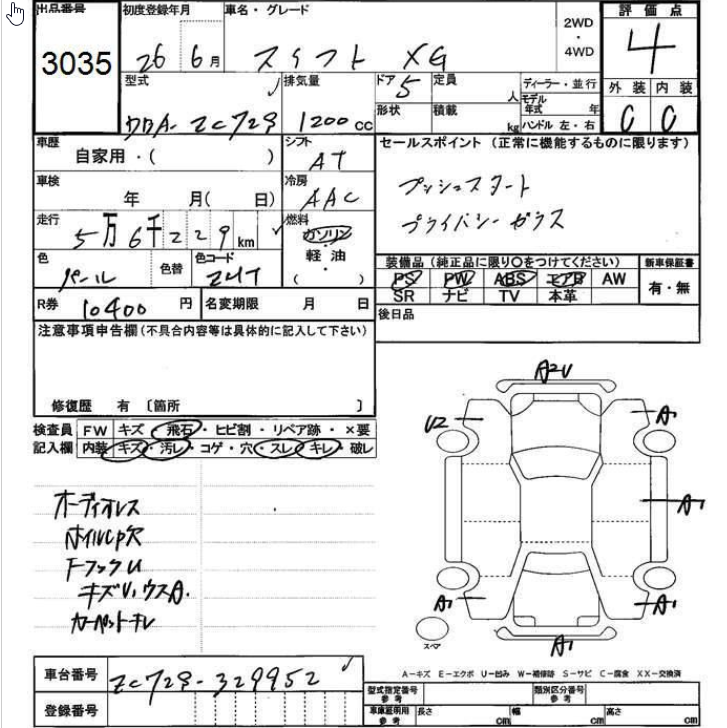 出品番号 3035
初度登録年月 26 6月
車名・グレード スイフト XG
2WD
・
4WD
評価点 4
外装 内装
C C
型式 DBA-ZC72S
排気量 1200cc
ドア 5
定員 人
形状
積載 kg
ディーラー・並行
モデル年式 年
ハンドル 左・右
車歴 自家用・( )
シフト AT
セールスポイント (正常に機能するものに限ります)
プッシュスタート
プライバシーガラス
車検 年 月( 日)
冷房 AAC
走行 5万6千229km
燃料 ガソリン
・
軽油
・
( )
色 パール
色替
色コード Z7T
装備品 (純正品に限り〇をつけてください)
新車保証書
PS PW ABS エアB AW
有・無
SR ナビ TV 本革
R券 10400 円
名変期限 月 日
後日品
注意事項申告欄 (不具合内容等は具体的に記入して下さい)
修復歴 有 〔箇所 〕
検査員 FW キズ・飛石・ヒビ割・リペア跡・×要
記入欄 内装 キズ・汚レ・コゲ・穴・スレ・キレ・破レ
オーディオレス
ホイルCP欠
キズU,ウスA.
カーペットキレ
A2U
U2
A1
A1
A1
A1
A1
スペア
A-キズ E-エクボ U-凹み W-補修跡 S-サビ C-腐食 XX-交換済
車台番号 ZC72S-329952
登録番号
型式指定番号 参考
類別区分番号 参考
車庫証明用 参考
長さ cm
幅 cm
高さ cm